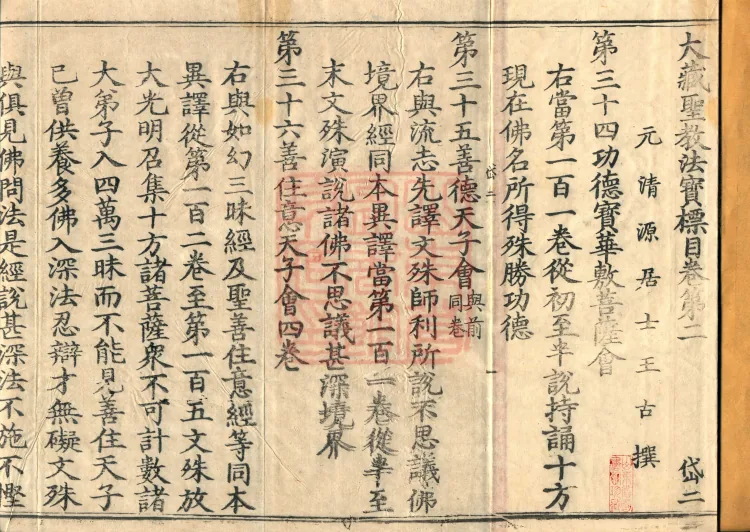 大藏聖教法寶標目卷第二 岱二
元清源居士王古撰
第三十四功德寶華敷菩薩會
右當第一百一卷從初至半說持誦十方
現在佛名所得殊勝功德
岱二 一
第三十五善德天子會與前同卷
右與流志先譯文殊師利所說不思議佛
境界經同本異譯當第一百一卷從半至
末文殊演說諸佛不思議甚深境界
第三十六善住意天子會四卷
右與如幻三昧經及聖善住意經等同本
異譯從第一百二卷至第一百五文殊放
大光明召集十方諸菩薩衆不可計數諸
大弟子入四萬三昧而不能見善住天子
已曾供養多佛入深法忍辯才無礙文殊
與俱見佛問法是經說甚深法不施不慳